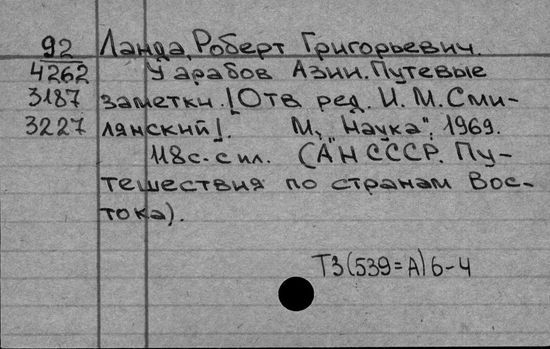 92 Ланда, Роберт Григорьевич.
4262 У арабов Азии. Путевые
3187 заметки. [Отв ред. И. М. Сми-
3227 лянский]. М., "Наука", 1969.
118с. с ил. (АН СССР. Пу-
тешествия по странам Вос-
тока).
Т3(539=А)6-4